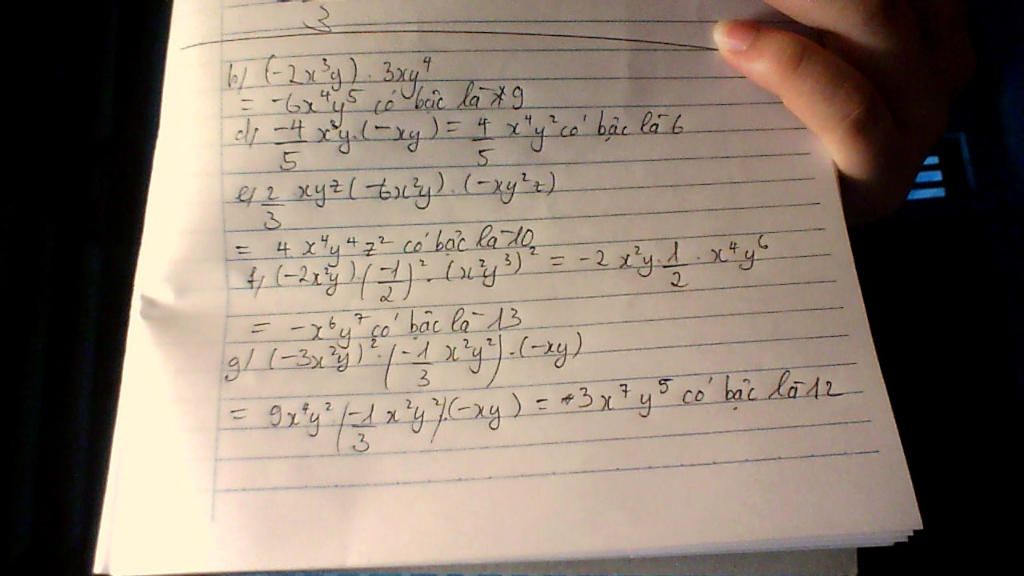 3
b) (-2x³y) . 3xy⁴
= -6x⁴y⁵ có bậc là 9
d) -4/5 x³y.(-xy) = 4/5 x⁴y² có bậc là 6
e) 2/3 xyz(-6x²y).(-xy²z)
= 4x⁴y⁴z² có bậc là 10
f) (-2x²y)(-1/2)².(x²y³)² = -2x²y.1/2.x⁴y⁶
= -x⁶y⁷ có bậc là 13
g) (-3x²y)².(-1/3 x²y²).(-xy)
= 9x⁴y².(-1/3 x²y²).(-xy) = 3x⁷y⁵ có bậc là 12